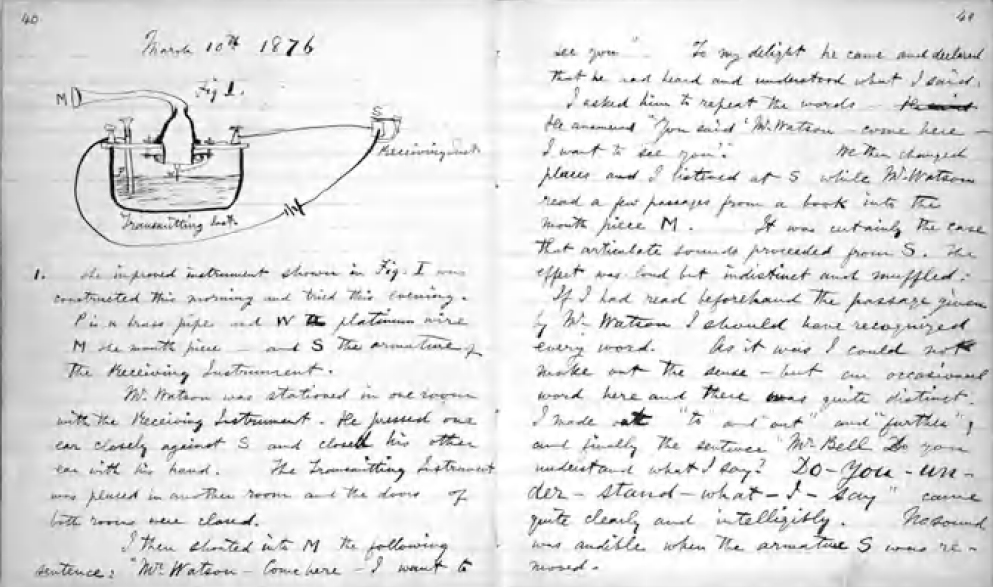 40
March 10th 1876
Fig 1.
M
S
Receiving Inst.
P
W
Transmitting Inst.
1. The improved instrument shown in Fig. I was
constructed this morning and tried this evening.
P is a brass pipe and W the platinum wire
M the mouth piece — and S the armature of
the Receiving Instrument.
Mr. Watson was stationed in one room
with the Receiving Instrument. He pressed one
ear closely against S and closed his other
ear with his hand. The Transmitting Instrument
was placed in another room and the doors of
both rooms were closed.
I then shouted into M the following
sentence: "Mr. Watson — Come here — I want to
41
see you". To my delight he came and declared
that he had heard and understood what I said.
I asked him to repeat the words — He said
He answered "You said 'Mr. Watson — come here —
I want to see you'." We then changed
places and I listened at S while Mr. Watson
read a few passages from a book into the
mouth piece M. It was certainly the case
that articulate sounds proceeded from S. The
effect was loud but indistinct and muffled.
If I had read beforehand the passage given
by Mr. Watson I should have recognized
every word. As it was I could not
make out the sense — but an occasional
word here and there was quite distinct.
I made out "to" and "out" and "further";
and finally the sentence "Mr. Bell Do you
understand what I say? Do — you — un —
der — stand — what — I — say" came
quite clearly and intelligibly. No sound
was audible when the armature S was re-
moved.